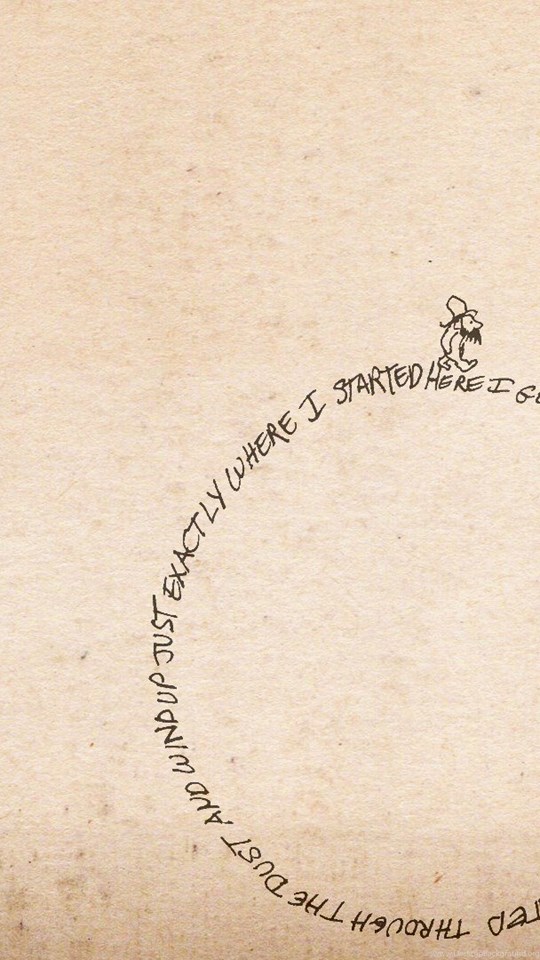 HERE I GO
TED THROUGH THE DUST AND WIND UP JUST EXACTLY WHERE I STARTED